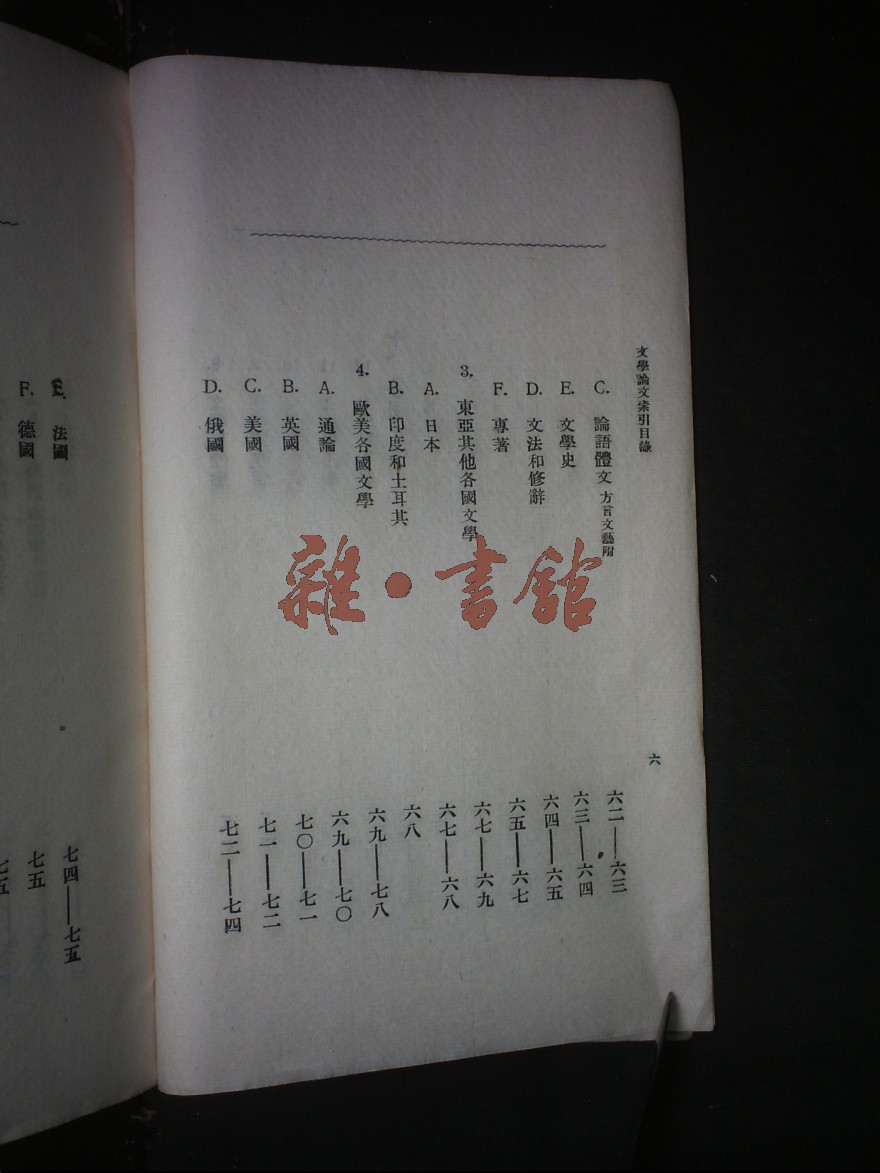 文學論文索引目錄
六
C. 論語體文 方言文藝附 六二——六三
E. 文學史 六三——六四
D. 文法和修辭 六四——六五
F. 專著 六五——六七
3. 東亞其他各國文學 六七——六九
A. 日本 六七——六八
B. 印度和土耳其 六八
4. 歐美各國文學 六九——七八
A. 通論 六九——七〇
B. 英國 七〇——七一
C. 美國 七一——七二
D. 俄國 七二——七四
E. 法國 七四——七五
F. 德國 七五
七五
雜·書館